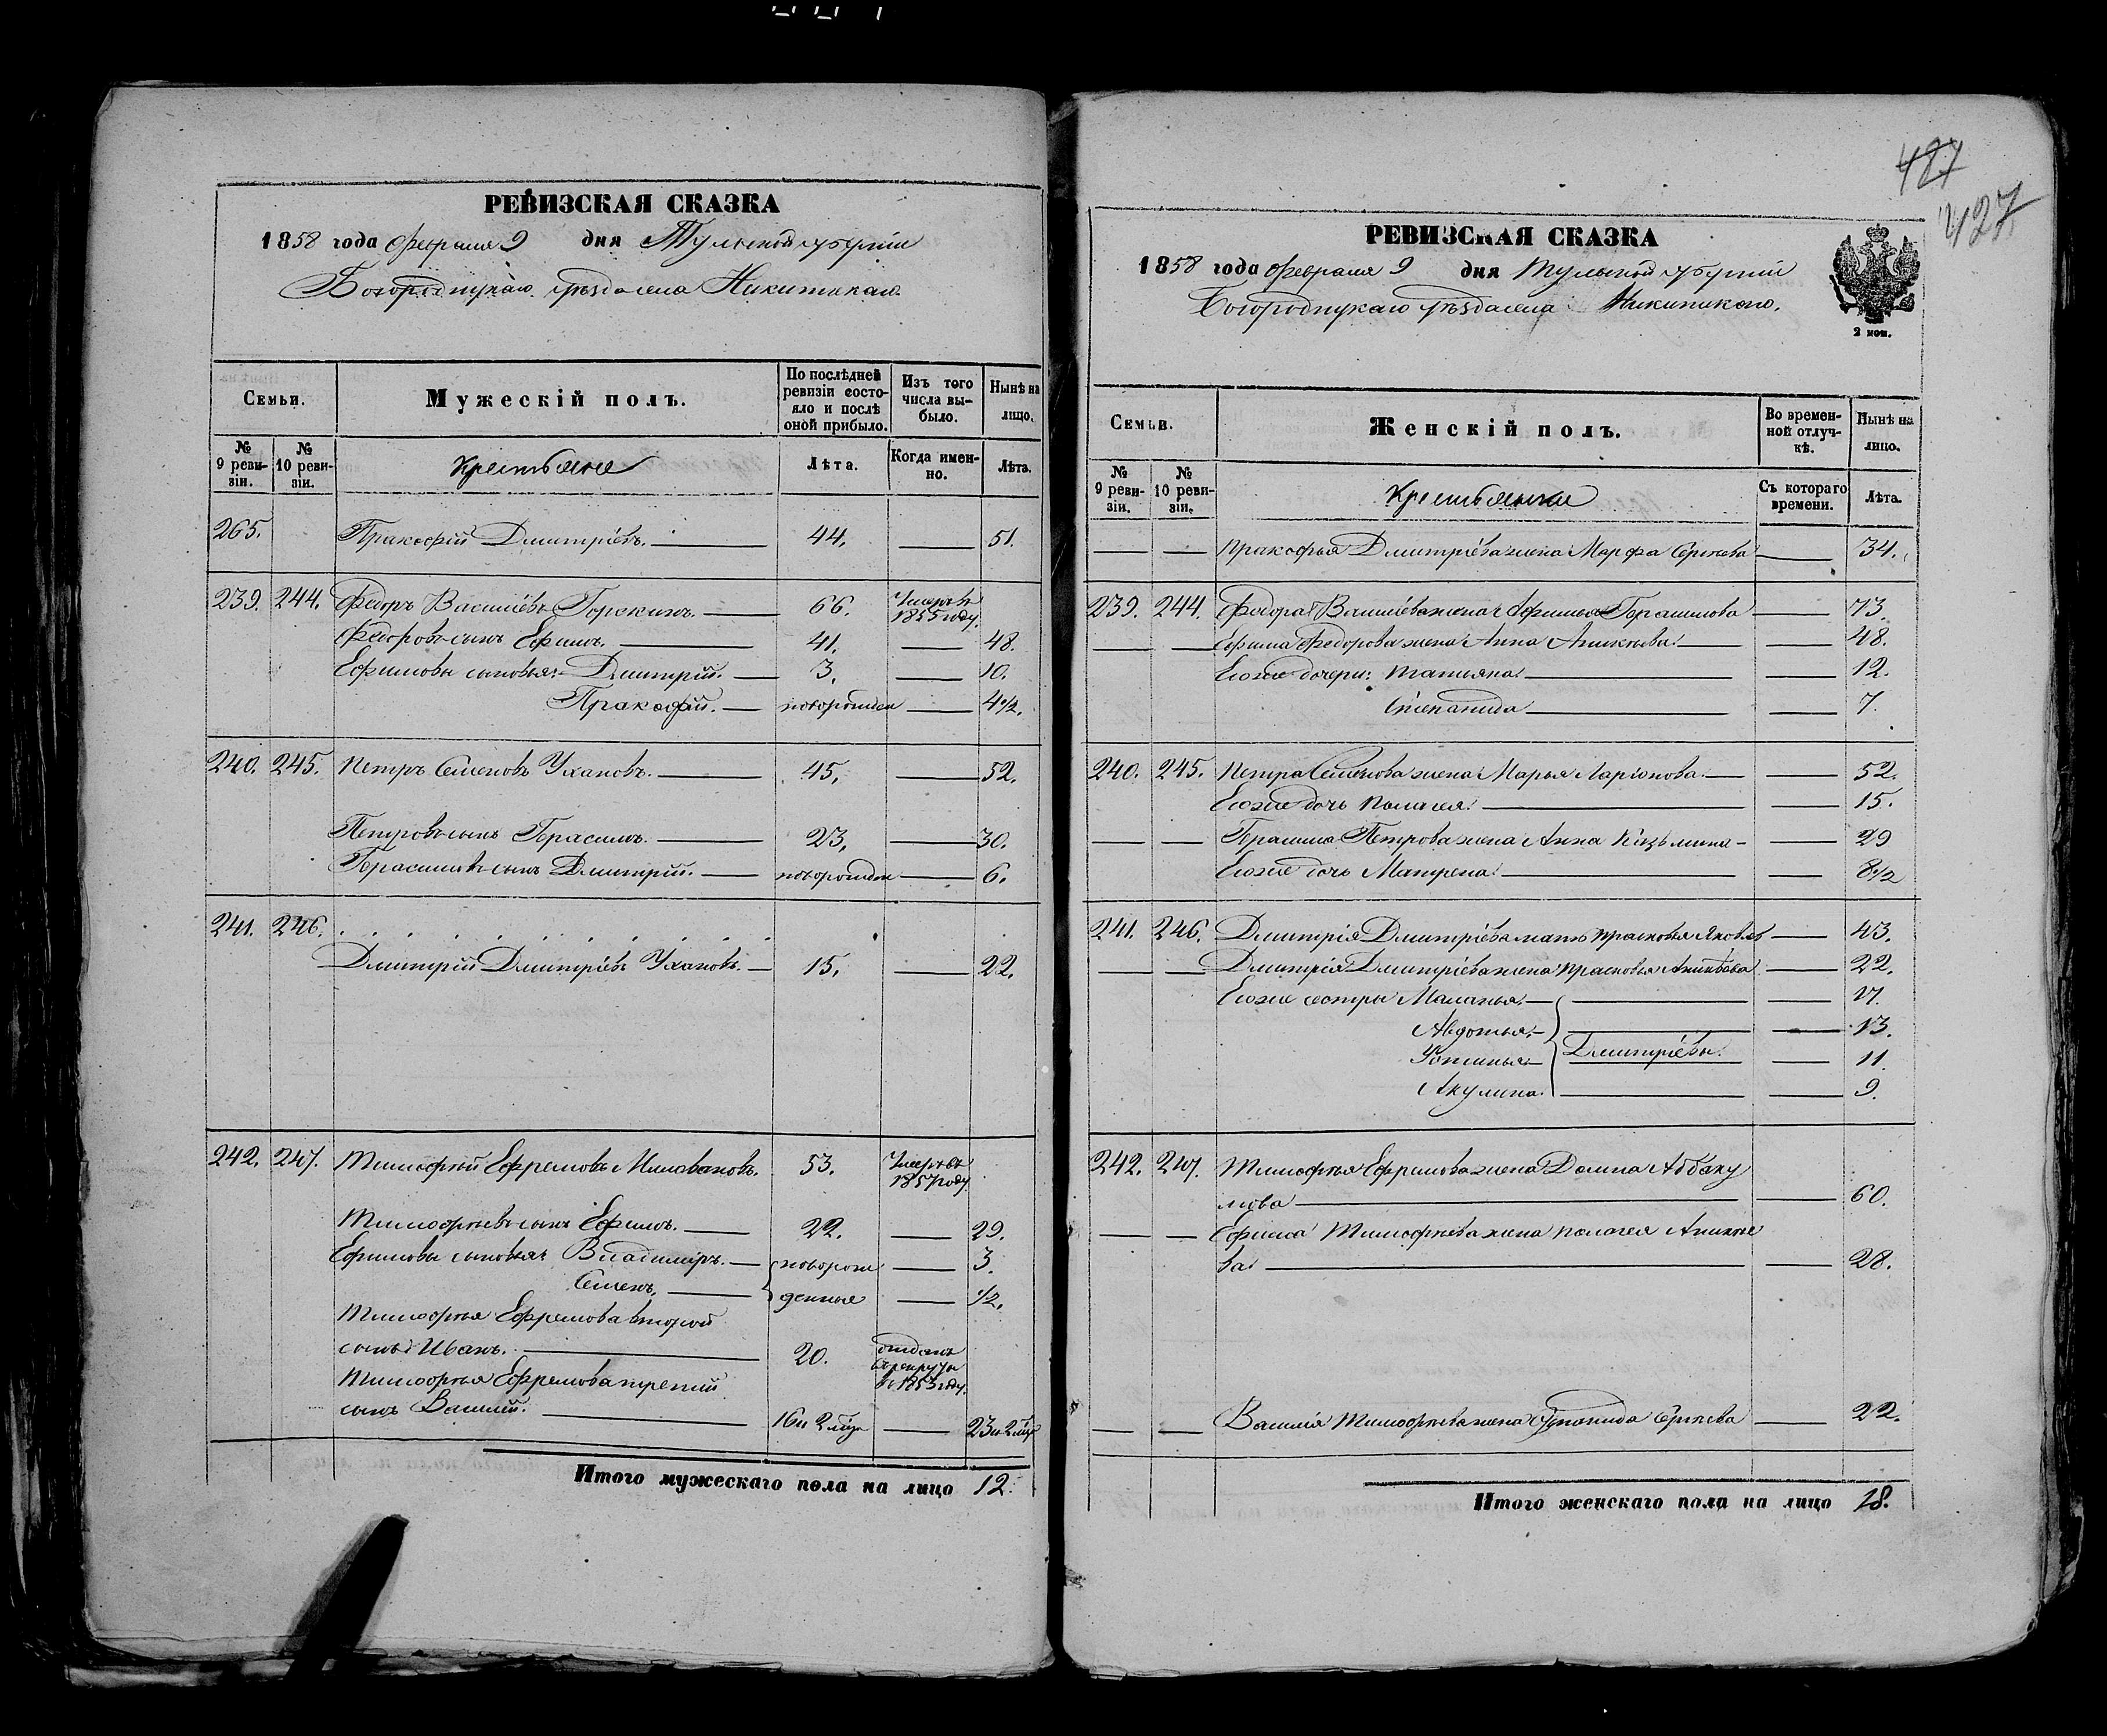 РЕВИЗСКАЯ СКАЗКА
1858 года Февраля 9 дня Тульской губернии
Богородицкаго уѣзда села Никитскаго.
Семьи.
Мужескій полъ.
По послѣдней ревизіи состояло и послѣ оной прибыло.
Изъ того числа выбыло.
Нынѣ на лицо.
№ 9 ревизіи.
№ 10 ревизіи.
Крестьяне
Лѣта.
Когда именно.
Лѣта.
265. Пракофій Дмитріевъ. 44. 51.
239. 244. Федоръ Васильевъ Горскинъ. 66. Умеръ въ 1855 году.
Федоровъ сынъ Ефимъ. 41. 48.
Ефимовы сыновья: Дмитрій. 3. 10.
Пракофій. новорожден 4 1/2.
240. 245. Петръ Семеновъ Ухановъ. 45. 52.
Петровъ сынъ Герасимъ. 23. 30.
Герасимовъ сынъ Дмитрій. новорожден 6.
241. 246.
Дмитрій Дмитріевъ Ухановъ. 15. 22.
242. 247. Тимофѣй Ефремовъ Миловановъ. 53. Умеръ въ 1857 году.
Тимофѣевъ сынъ Ефимъ. 22. 29.
Ефимовы сыновья Владиміръ. новорож 3.
Семенъ. денные 1/2.
Тимофѣя Ефремова второй
сынъ Иванъ. 20. отданъ в рекруты в 1853 году.
Тимофѣя Ефремова третій
сынъ Василій. 16 и 2 мѣс 23 и 2 мѣс
Итого мужескаго пола на лицо 12.
427
427.
РЕВИЗСКАЯ СКАЗКА
1858 года Февраля 9 дня Тульской губерніи
Богородицкаго уѣзда села Никитскаго.
2 коп.
Семьи.
Женскій полъ.
Во временной отлучкѣ.
Нынѣ на лицо.
№ 9 ревизіи.
№ 10 ревизіи.
Крестьянки
Съ котораго времени.
Лѣта.
Пракофья Дмитріева жена Марфа Сергеева 34.
239. 244. Федора Васильева жена Афимья Герасимова 73.
Ефима Федорова жена Анна Аникѣева 48.
Его же дочери: Татьяна 12.
Степанида 7.
240. 245. Петра Семенова жена Марья Ларіонова 52.
Его же дочь Палагея 15.
Герасима Петрова жена Анна Кузьмина 29
Его же дочь Матрена 8 1/2
241. 246. Дмитрія Дмитріева мать Прасковья Яковлв 43.
Дмитрія Дмитріева жена Прасковья 22.
Его же сестры Маланья 17.
Авдотья 13.
Устинья Дмитріевы. 11
Акулина 9.
242. 247. Тимофѣя Ефремова жена Домна Аббаку
мова 60.
Ефима Тимофѣева жена Палагея Аникѣе
ва 28.
Василія Тимофѣева жена Степанида Сергѣева 22.
Итого женскаго пола на лицо 18.